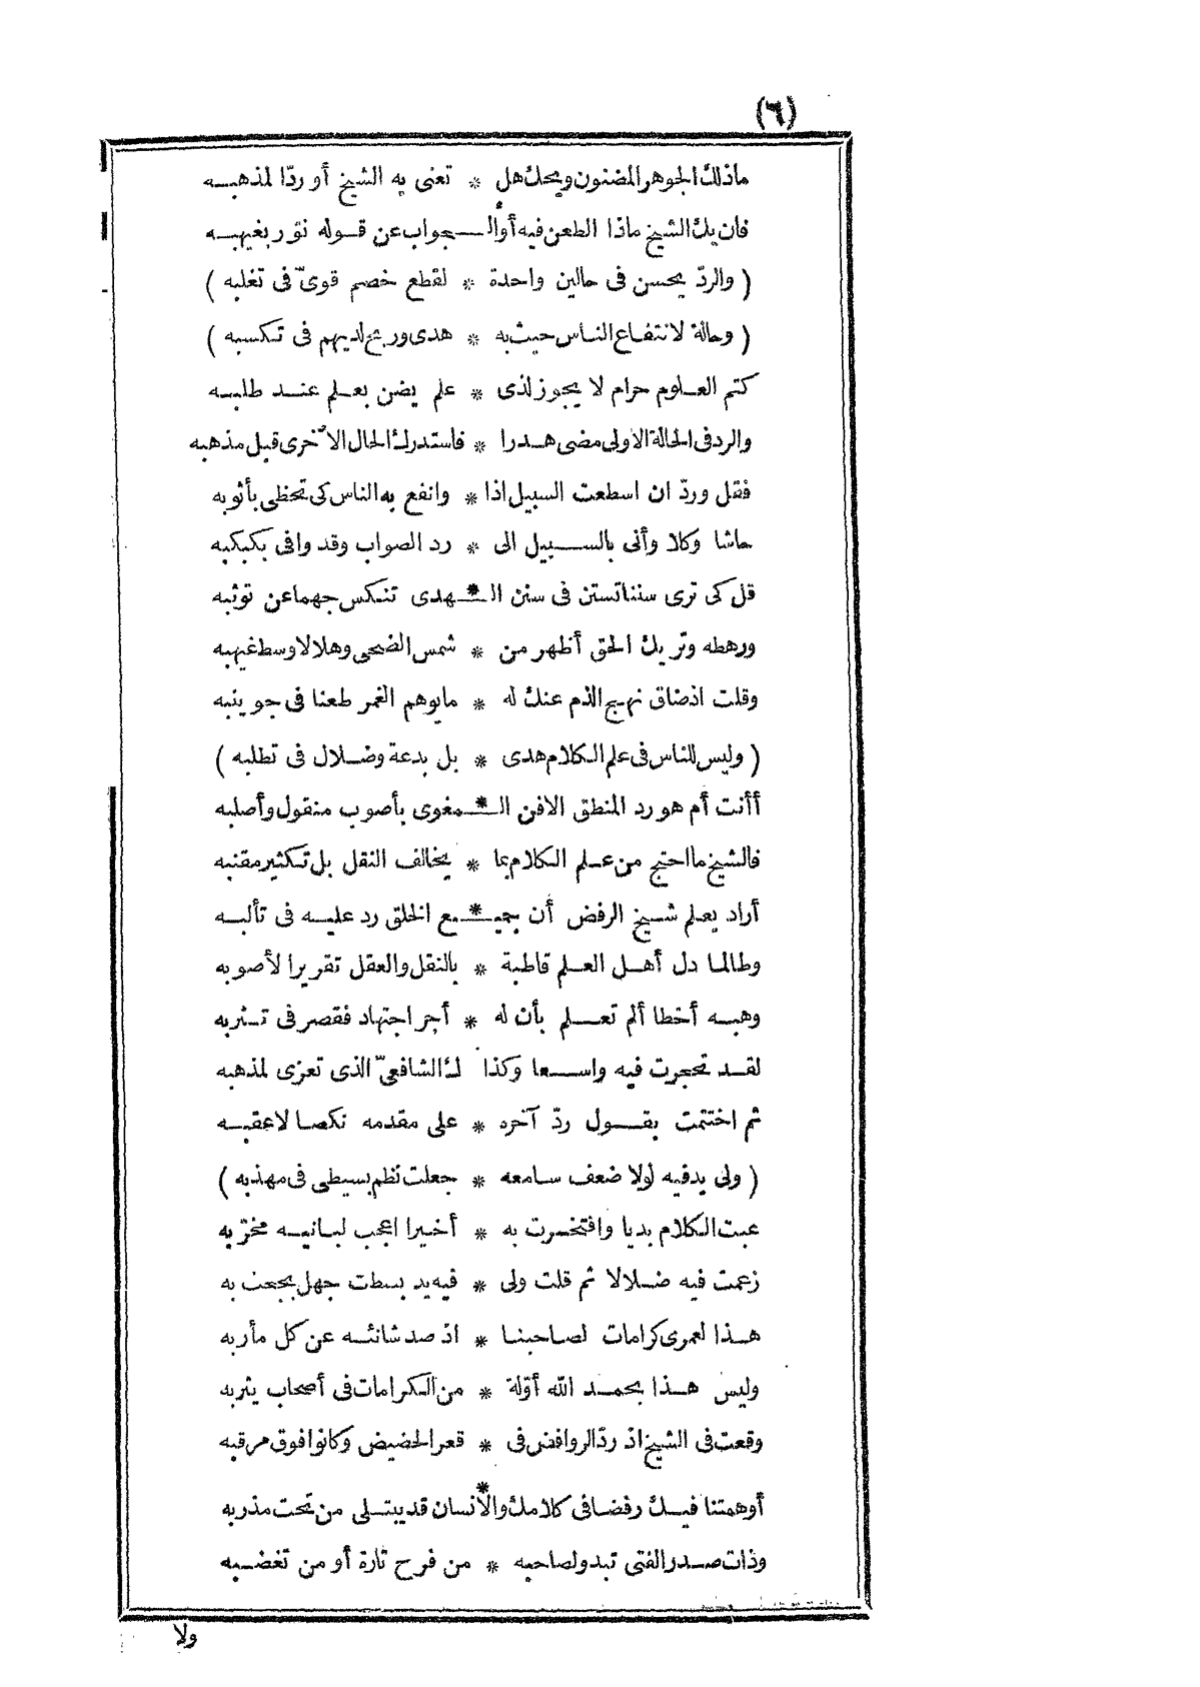 (٦)
ماذلك الجوهر المضنون ويحك هل * تعنى به الشيخ أو ردّا لمذهبه
فان يك الشيخ ماذا الطعن فيه أو الـجواب عن قوله نوّر بغيهبه
( والردّ يحسن فى حالين واحدة * لقطع خصم قوىّ فى تغلبه )
( وحالة لانتفاع الناس حيث به * هدى وربح لديهم فى تكسبه )
كتم العلوم حرام لا يجوز لذى * علم يضن بعلم عند طلبه
والرد فى الحالة الاولى مضى هدرا * فاستدرك الحال الاخرى قبل مذهبه
فقل وردّ ان اسطعت السبيل اذا * وانفع به الناس كى تحظى بأثوبه
حاشا وكلا وأنى بالسبيل الى * رد الصواب وقد وافى بكبكبه
قل كى ترى سننا تستن فى سنن الـ * ـهدى تنكس جهما عن توثبه
ورهطه وتريك الحق أظهر من * شمس الضحى وهلالا وسط غيهبه
وقلت اذ ضاق نهج الذم عنك له * مايوهم الغمر طعنا فى جوينبه
( وليس للناس فى علم الكلام هدى * بل بدعة وضلال فى تطلبه )
أأنت أم هو رد المنطق الافن الـ * ـمغوى بأصوب منقول وأصلبه
فالشيخ ما احتج من علم الكلام بما * يخالف النقل بل تكثير مقنبه
أراد يعلم شيخ الرفض أن جميـ * ـع الخلق رد عليه فى تألبه
وطالما دل أهل العلم قاطبة * بالنقل والعقل تقريرا لأصوبه
وهبه أخطا ألم تعلم بأن له * أجر اجتهاد فقصر فى تثربه
لقد تحجرت فيه واسعا وكذا ك الشافعىّ الذى تعزى لمذهبه
ثم اختتمت بقول ردّ آخره * على مقدمه نكصا لاعقبه
( ولى يد فيه لولا ضعف سامعه * جعلت نظم بسيطى فى مهذبه )
عبت الكلام بديا وافتخرت به * أخيرا اعجب لبانيه مخرّبه
زعمت فيه ضلالا ثم قلت ولى * فيه يد بسطت جهل بجعت به
هذا لعمرى كرامات لصاحبنا * اذ صد شانئه عن كل مأربه
وليس هذا بحمد الله أوّلة * من الكرامات فى أصحاب يثربه
وقعت فى الشيخ اذ ردّ الروافض فى * قعر الحضيض وكانوا فوق مرقبه
أوهمتنا فيك رفضا فى كلامك والا * نسان قد يبتلى من تحت مذربه
وذات صدر الفتى تبدو لصاحبه * من فرح تارة أو من تغضبه
ولا